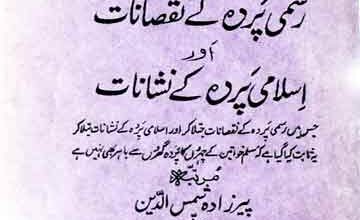 رسمی پردہ کے نقصانات
اور
اسلامی پردہ کے نشانات
جسمیں رسمی پردہ کے نقصانات بتلاکر اور اسلامی پردہ کے نشانات بتلاکر
یہ ثابت کیا گیا ہے کہ مسلم خواتین کے چہروں کا پردہ گھروں سے باہر بھی نہیں ہے
مرتبہ
پیرزادہ شمس الدین